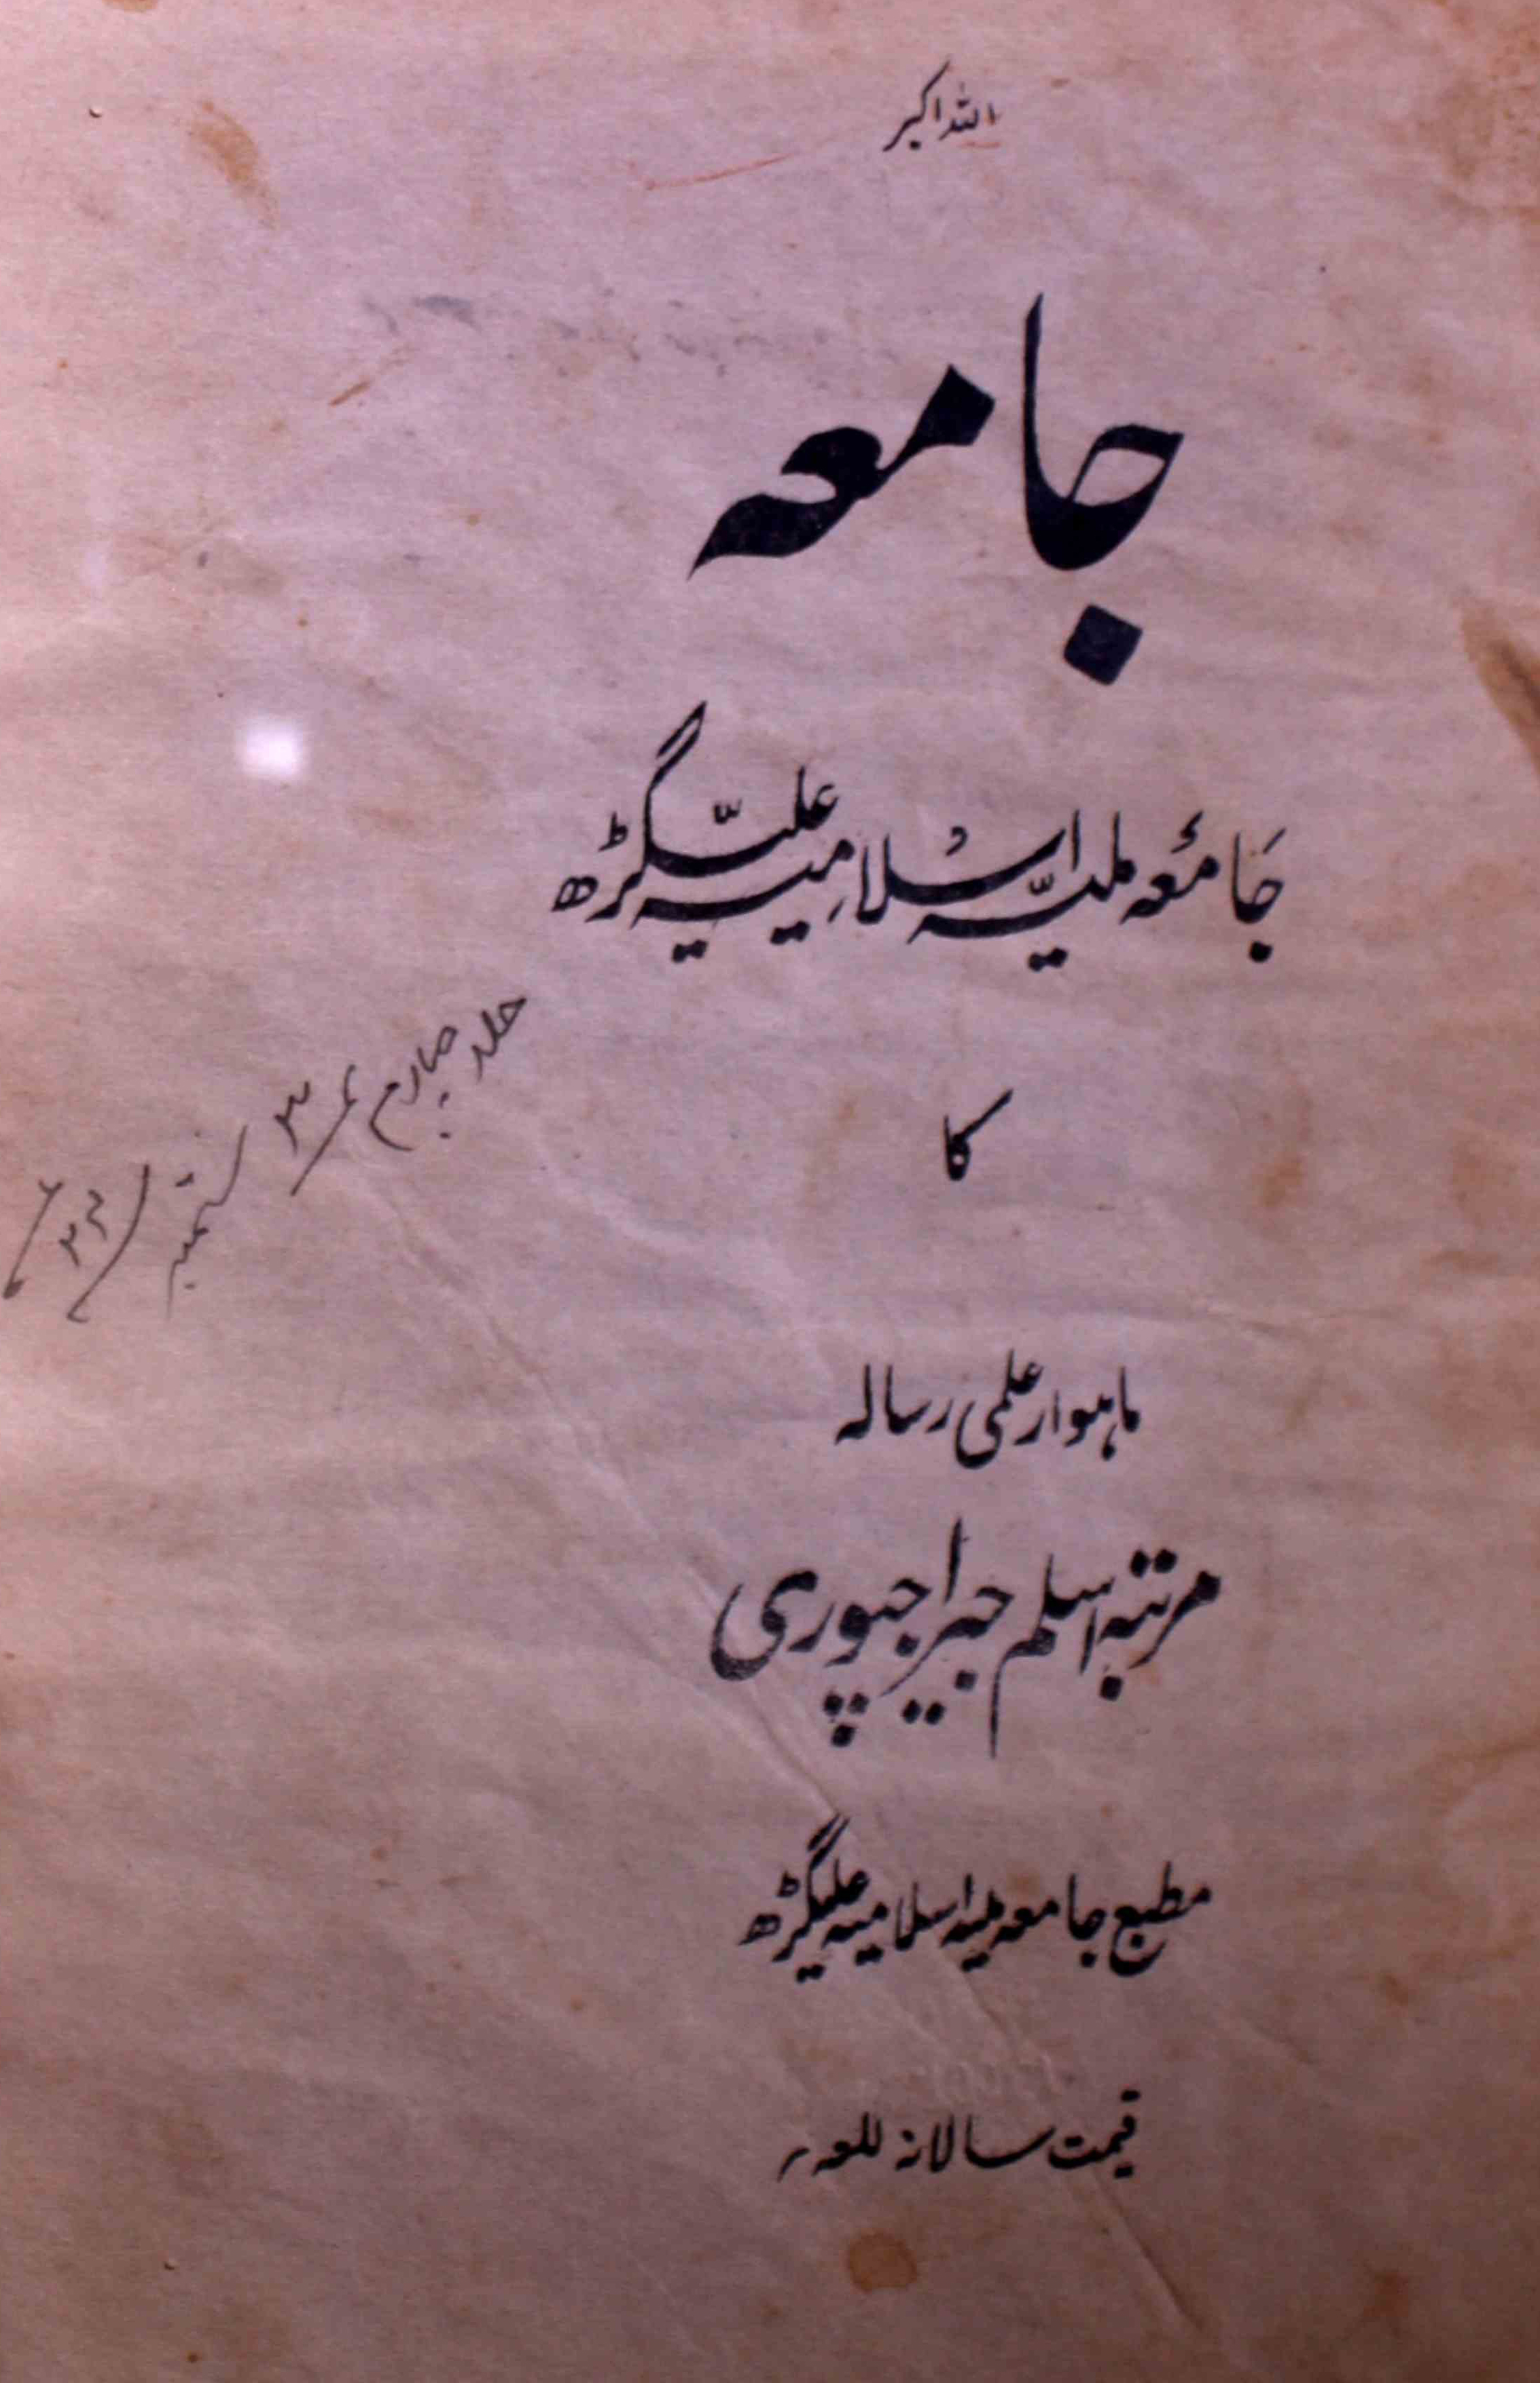 اللہ اکبر
جامعہ
جامعہ ملیہ اسلامیہ علیگڑھ
کا
جلد چہارم نمبر ۳ ستمبر
ماہوار علمی رسالہ
مرتبہ اسلم جیراجپوری
مطبع جامعہ ملیہ اسلامیہ علیگڑھ
قیمت سالانہ للعہ